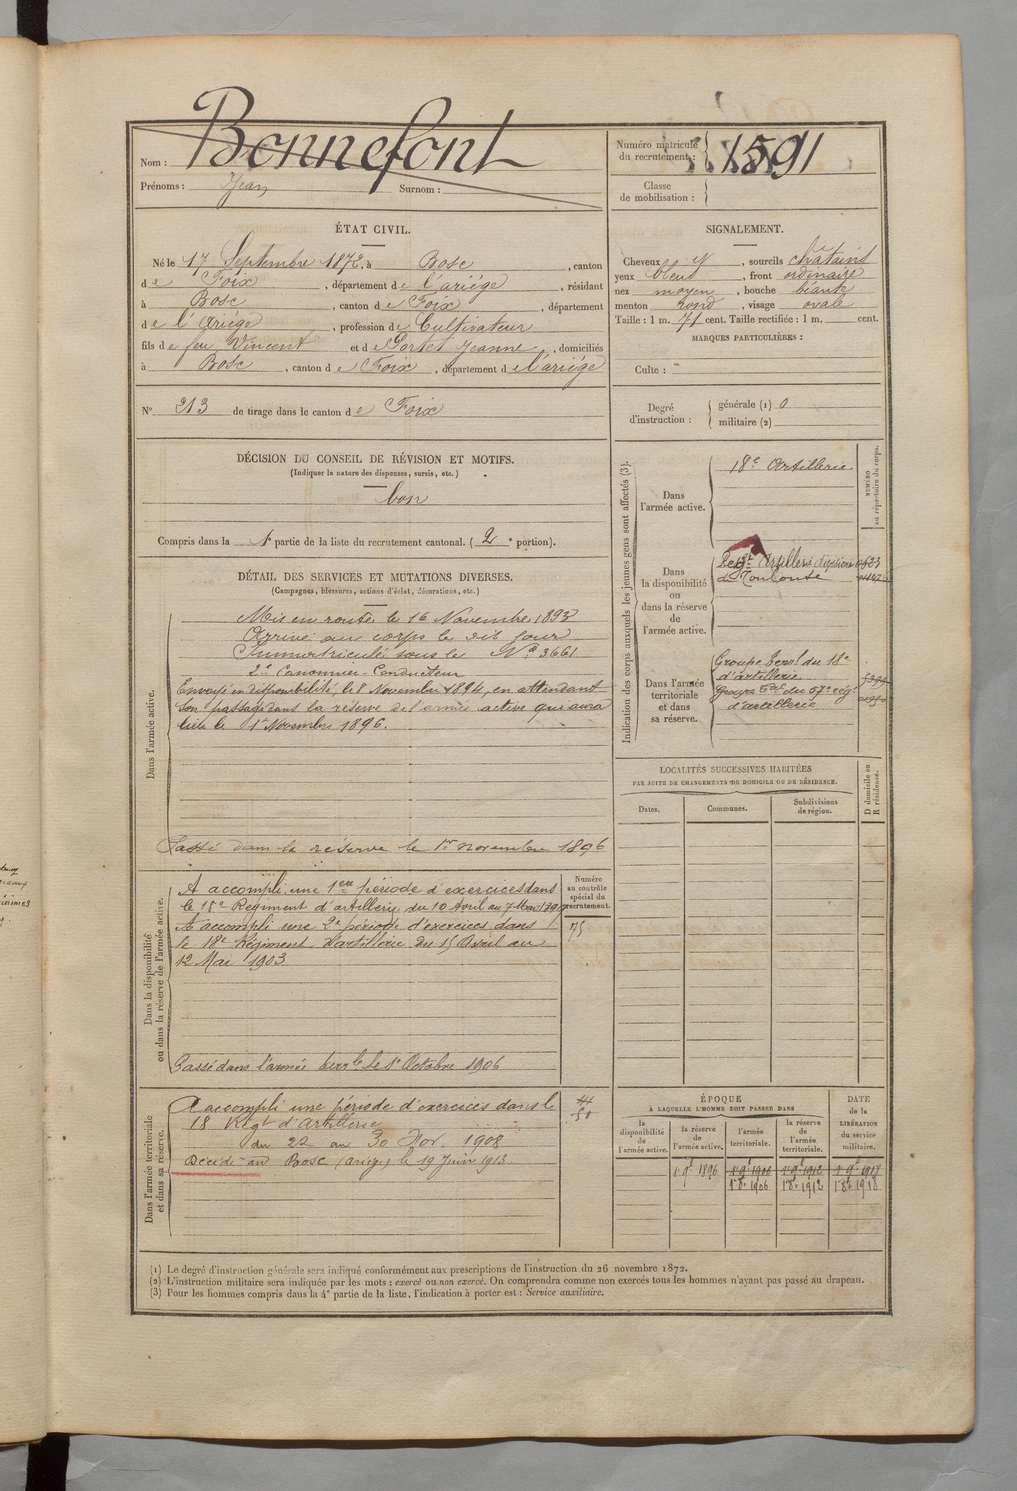 Nom : Bonnefont
Prénoms : Jean Surnom :
Numéro matricule du recrutement : 1591
Classe de mobilisation :
ÉTAT CIVIL.
Né le 17 Septembre 1872, à Bosc, canton
de Foix, département de l'ariège, résidant
à Bosc, canton de Foix, département
de l'Ariège, profession de Cultivateur
fils de feu Vincent et de Portet Jeanne, domiciliés
à Bosc, canton de Foix, département de l'ariège
N° 213 de tirage dans le canton de Foix
SIGNALEMENT.
Cheveux et sourcils chatains
yeux bleus, front ordinaire
nez moyen, bouche béante
menton rond, visage ovale
Taille : 1 m. 71 cent. Taille rectifiée : 1 m. cent.
MARQUES PARTICULIÈRES :
Culte :
Degré d'instruction : générale (1) 0
militaire (2)
DÉCISION DU CONSEIL DE RÉVISION ET MOTIFS.
(Indiquer la nature des dispenses, sursis, etc.)
bon
Compris dans la 1e partie de la liste du recrutement cantonal. (2e portion).
DÉTAIL DES SERVICES ET MUTATIONS DIVERSES.
(Campagnes, blessures, actions d'éclat, décorations, etc.)
Dans l'armée active.
Mis en route le 16 Novembre 1893
Arrivé au corps le dit jour
Immatriculé sous le N° 3661
2e Canonnier-Conducteur
Envoyé en disponibilité, le 8 Novembre 1894, en attendant
son passage dans la réserve de l'armée active qui aura
lieu le 1er Novembre 1896.
Passé dans la réserve le 1er novembre 1896
Dans la disponibilité
ou dans la réserve de l'armée active.
A accompli une 1ère période d'exercices dans
le 18e Régiment d'artillerie, du 10 Avril au 7 Mai
A accompli une 2e période d'exercices dans
le 18e Régiment d'artillerie du 15 Avril au
12 Mai 1903
Passé dans l'armée terrle le 1er Octobre 1906
Numéro au contrôle spécial du recrutement.
75
Dans l'armée territoriale
et dans sa réserve.
A accompli une période d'exercices dans le
18 Régt d'Artillerie
du 22 au 30 Nov. 1908
Décédé au Bosc (Ariège) le 19 Juin 1913
Indication des corps auxquels les jeunes gens sont affectés (3).
NUMÉRO
au répertoire du corps.
Dans l'armée active.
18e Artillerie
Dans la disponibilité ou dans la réserve de l'armée active.
Artillerie division
de Toulouse
Dans l'armée territoriale et dans sa réserve.
Groupe terrl du 18e
d'artillerie
Groupe du 57e rég
d'artillerie
LOCALITÉS SUCCESSIVES HABITÉES
PAR SUITE DE CHANGEMENTS DE DOMICILE OU DE RÉSIDENCE.
Dates. Communes. Subdivisions de région.
D domicile ou R résidence.
ÉPOQUE
À LAQUELLE L'HOMME DOIT PASSER DANS
la disponibilité de l'armée active.
la réserve de l'armée active.
l'armée territoriale.
la réserve de l'armée territoriale.
DATE de la LIBÉRATION du service militaire.
1896
1906 1912 1918
(1) Le degré d'instruction générale sera indiqué conformément aux prescriptions de l'instruction du 26 novembre 1872.
(2) L'instruction militaire sera indiquée par les mots : exercé ou non exercé. On comprendra comme non exercés tous les hommes n'ayant pas passé au drapeau.
(3) Pour les hommes compris dans la 4e partie de la liste, l'indication à porter est : Service auxiliaire.